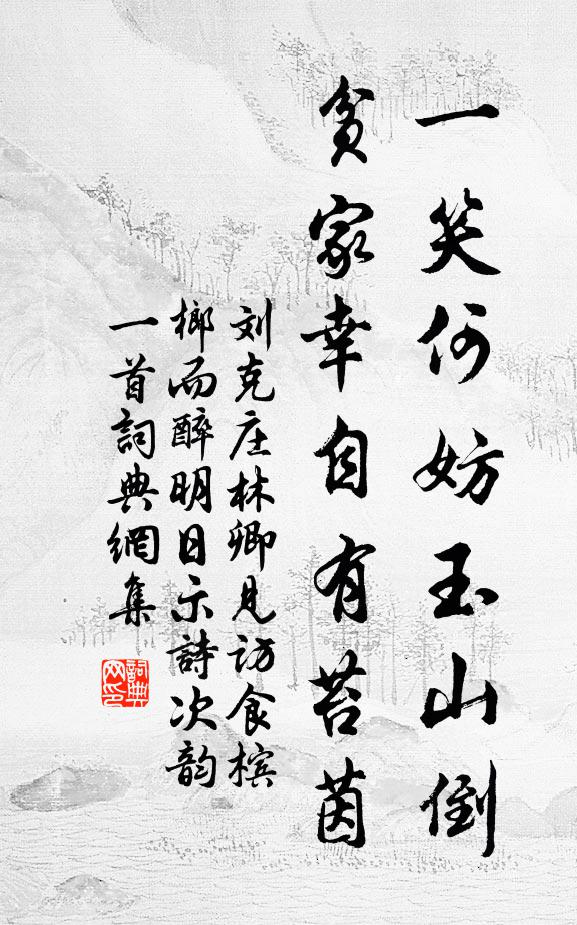 一笑何妨玉山倒
貧家幸自有苔茵
刘克庄林卿見访食槟
榔而醉明日示詩次韵
一首詞典網集
詞典网印